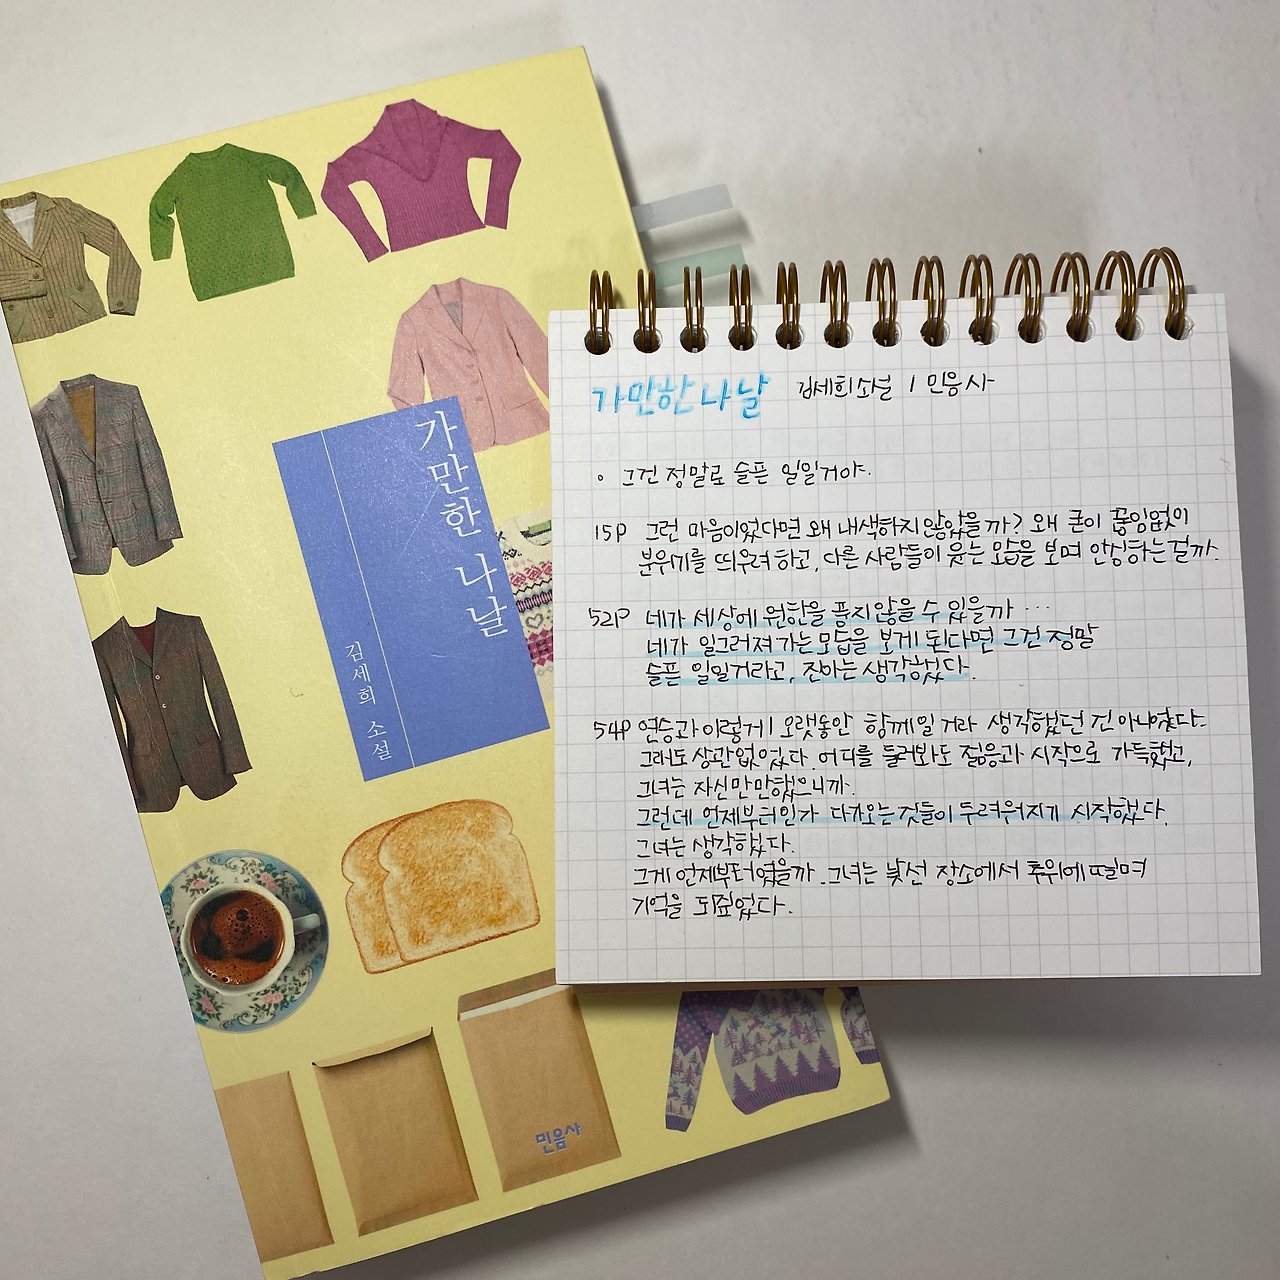 가만한 나날
김세희 소설
민음사
가만한 나날 김세희 소설 / 민음사
◦ 그건 정말로 슬픈 일일거야.
15P 그런 마음이었다면 왜 내색하지 않았을까? 왜 굳이 끊임없이
분위기를 띄우려 하고, 다른 사람들이 웃는 모습을 보며 안심하는 걸까.
52P 네가 세상에 원한을 품지 않을 수 있을까 …
네가 일그러져 가는 모습을 보게 된다면 그건 정말
슬픈 일일거라고, 진아는 생각했다.
54P 연승과 이렇게 오랫동안 함께일 거라 생각했던 건 아니었다.
그래도 상관없었다. 어디를 둘러봐도 젊음과 시작으로 가득했고,
그녀는 자신만만했으니까.
그런데 언제부터인가 다가오는 것들이 두려워지기 시작했다.
그녀는 생각했다.
그게 언제부터였을까. 그녀는 낯선 장소에서 추위에 떨며
기억을 되짚었다.